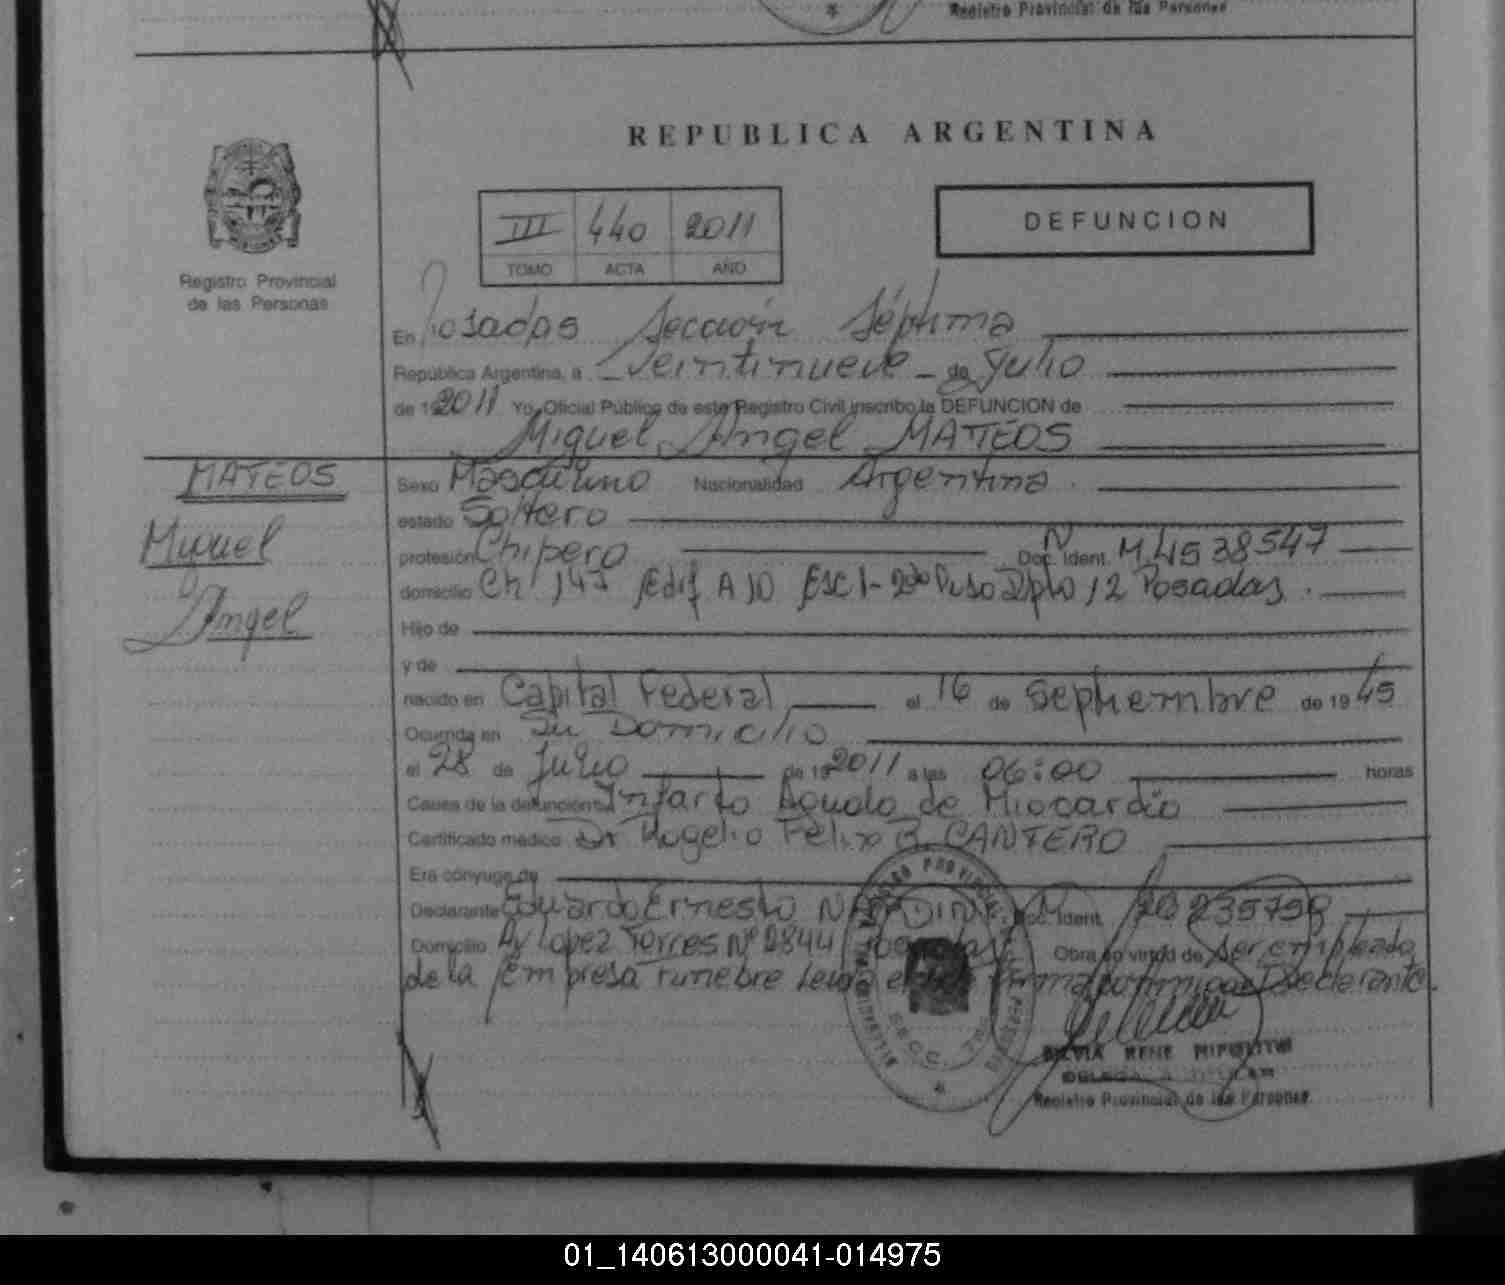 Registro Provincial de las Personas
REPUBLICA ARGENTINA
III 440 2011
TOMO ACTA AÑO
DEFUNCION
Registro Provincial
de las Personas
En Posadas Sección Séptima
República Argentina, a Veintinueve de Julio
de 19 2011 Yo, Oficial Público de este Registro Civil inscribo la DEFUNCION de
Miguel Angel MATEOS
MATEOS
Miguel
Angel
Sexo Masculino Nacionalidad Argentina
estado Soltero
profesión Chipero Doc. Ident. N M 4538547
domicilio Ch 147 Edif A 10 Esc 1-2do Piso Dpto 12 Posadas.
Hijo de
y de
nacido en Capital Federal el 16 de Septiembre de 19 45
Ocurrida en Su Domicilio
el 28 de Julio de 19 2011 a las 06:00 horas
Causa de la defunción Infarto Agudo de Miocardio
Certificado médico Dr Rogelio Félix R. CANTERO
Era cónyuge de
Declarante Eduardo Ernesto Doc. Ident. N 20235798
Domicilio Av Lopez Torres Nº 2844 Posadas Obra en virtud de Ser empleado
de la Empresa Funebre Leida el firma conmigo Declarante.
REGISTRO PROVINCIAL DE LAS PERSONAS
SILVIA RENE
Registro Provincial de las Personas
01_140613000041-014975